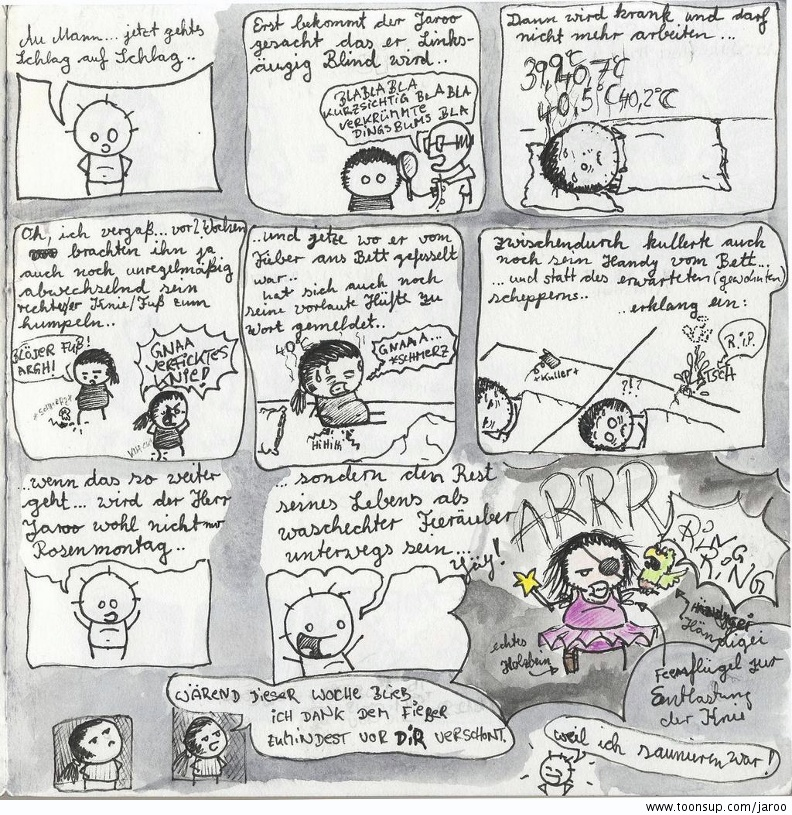 Au Mann... jetzt gehts
Schlag auf Schlag..
Erst bekommt der Jaroo
gesacht das er Links-
äugig Blind wird..
BLABLABLA
KURZSICHTIG BLABLA
VERKRÜMMTE
DINGSBUMS BLA
Dann wird krank und darf
nicht mehr arbeiten...
39,9°C 40,7°C
40,5°C 40,2°C
Oh, ich vergaß... vor 2 Wochen
brachten ihn ja
auch noch unregelmäßig
abwechselnd sein
rechtes/er Knie/Fuß zum
humpeln..
BLÖJER FUß!
ARGH!
GNAA
VERFICKTES
KNIE!
*SCHMERZ*
..und jetze wo er vom
Fieber ans Bett gefesselt
war..
hat sich auch noch
seine vorlaute Hüfte zu
Wort gemeldet..
40°
GNAAA...
*SCHMERZ
HiHiHi
zwischendurch kullerte auch
noch sein Handy vom Bett...
...und statt des erwarteten (gewohnten)
schepperns..
..erklang ein:
*Kuller*
?!?
R.i.P.
PLATSCH
..wenn das so weiter
geht... wird der Herr
Jaroo wohl nicht nur
Rosenmontag..
... sondern den Rest
seines Lebens als
waschechter Feeräuber
unterwegs sein...
Yay!
ARRR
RiNG
RiNG
echtes
Holzbein
Händigei
Feenflügel zur
Entlastung
der Knie
WÄREND DIESER WOCHE BLIEB
ICH DANK DEM FIEBER
ZUMINDEST VOR DIR VERSCHONT.
weil ich saunieren war!
www.toonsup.com/jaroo